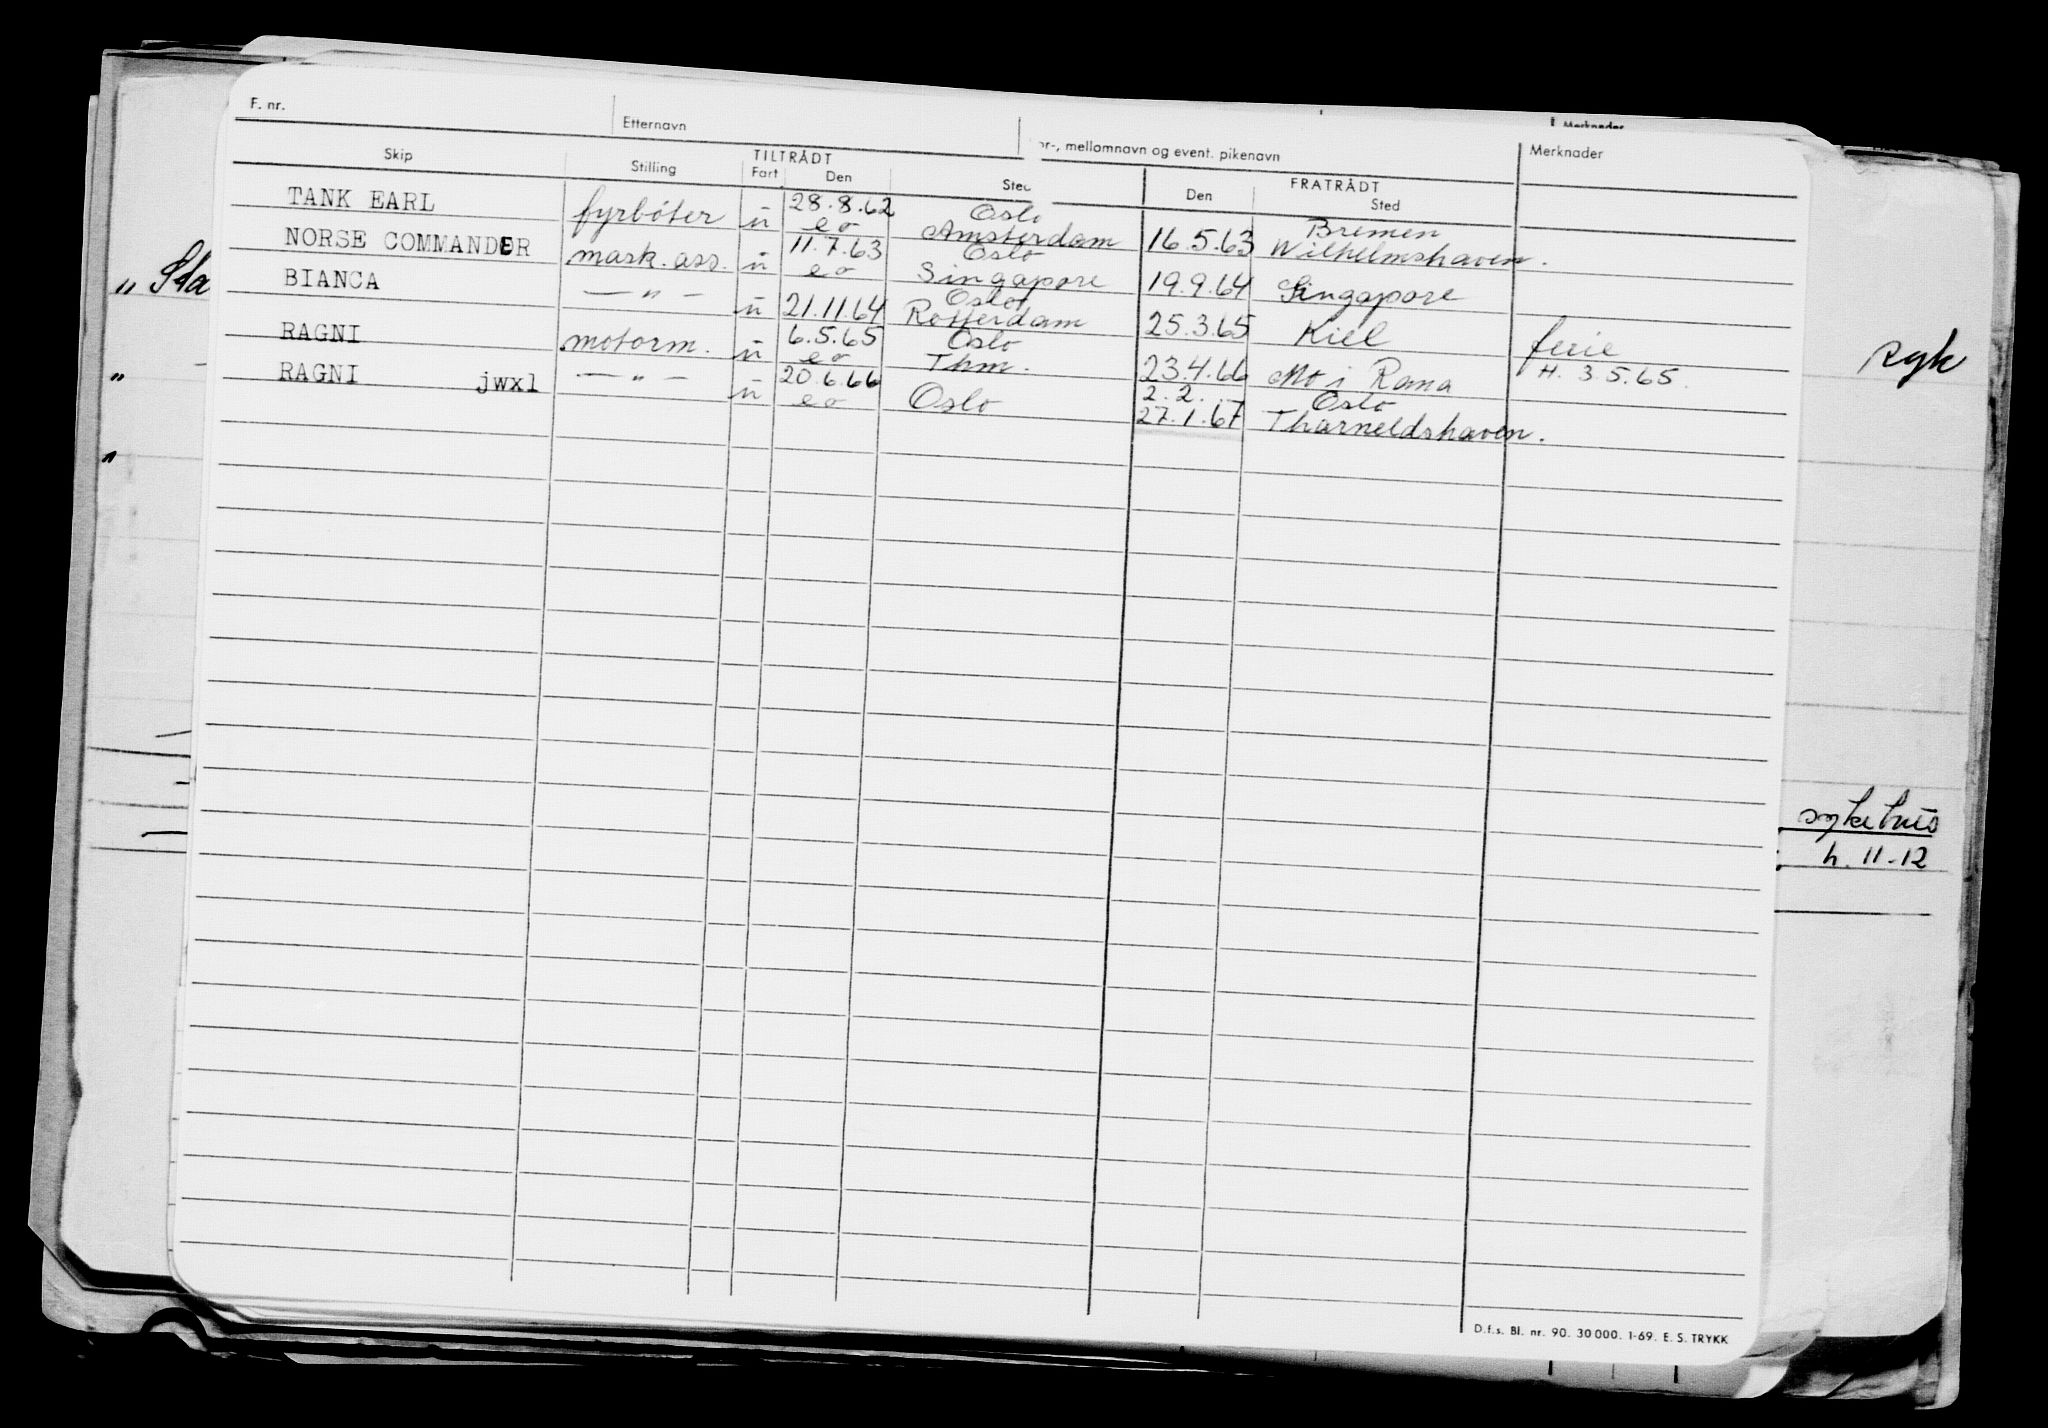 F. nr.
Etternavn
or-, mellomnavn og event. pikenavn
Merknader
Merknader
Skip
Stilling
TILTRÅDT
Fart
Den
Sted
FRATRÅDT
Den
Sted
TANK EARL fyrbøter ū 28.8.62 Oslo
eo Amsterdam 16.5.63 Bremen
Wilhelmshaven.
NORSE COMMANDER mask. ass. ū 11.7.63 Oslo
eo Singapore 19.9.64 Singapore
BIANCA — " — ū 21.11.64 Oslo
Rotterdam 25.3.65 Kiel ferie
H. 3.5.65.
RAGNI motorm. ū 6.5.65 Oslo
eo Thm. 23.4.66 Mo i Rana
RAGNI jwxl — " — ū 20.6.66
eo Oslo 2.2. Oslo
27.1.67 Tharneldshaven.
"
"
"
sykehus
h. 11-12
D.f.s. Bl. nr. 90. 30 000. 1-69. E. S. TRYKK